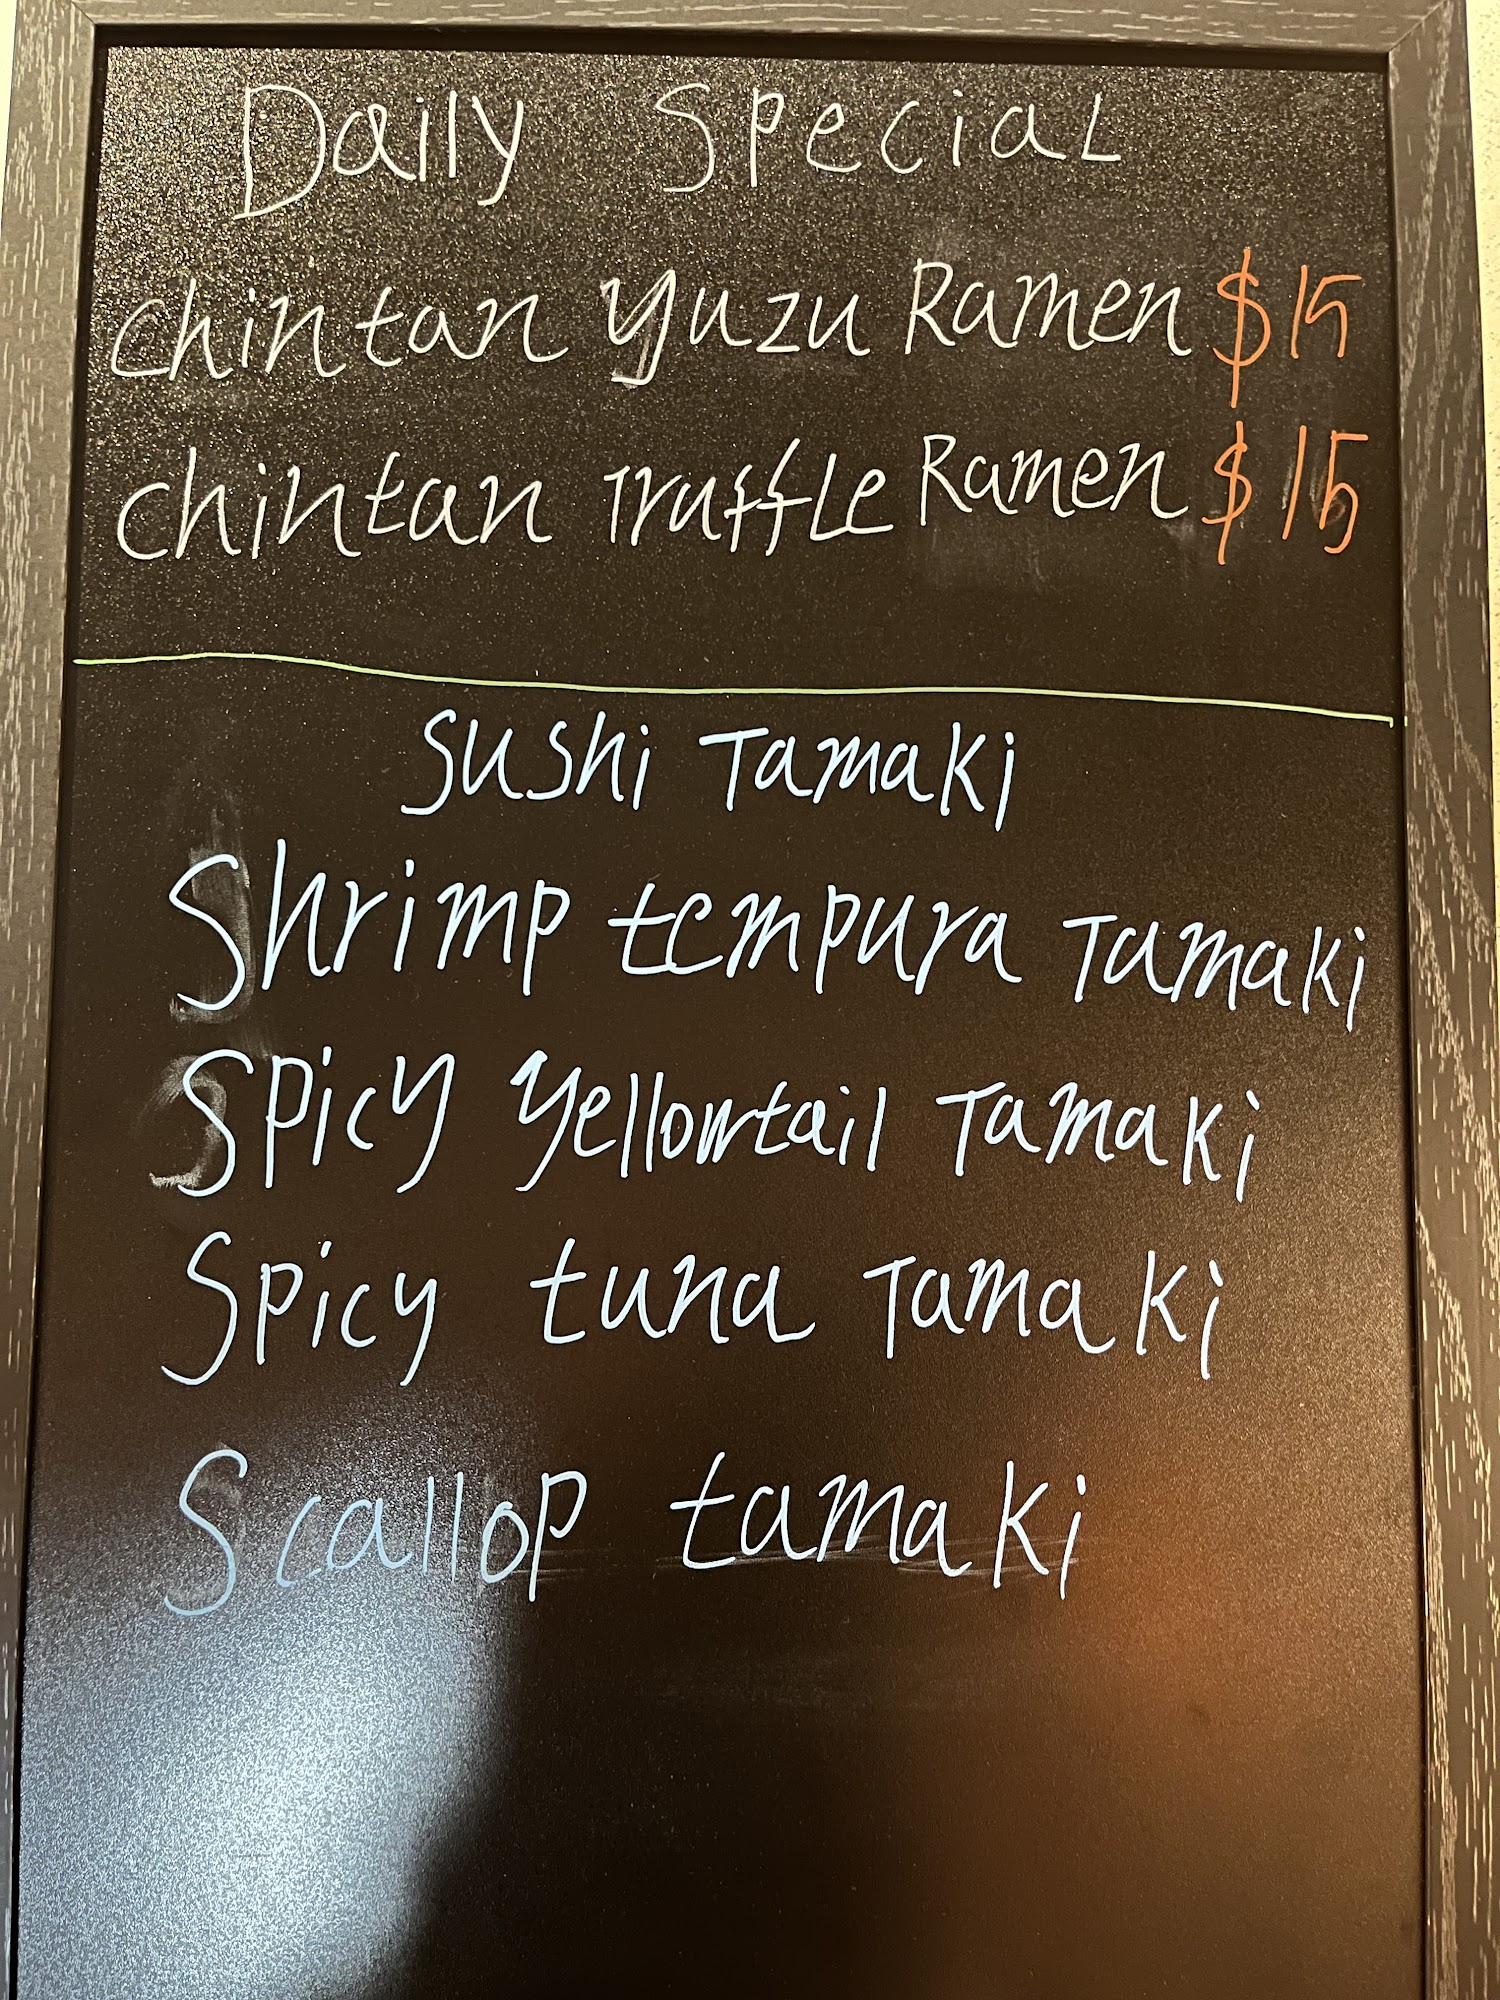 Daily Special
chintan yuzu Ramen $15
chintan Truffle Ramen $15
sushi Tamaki
Shrimp tempura Tamaki
Spicy yellowtail Tamaki
Spicy tuna Tamaki
Scallop tamaki